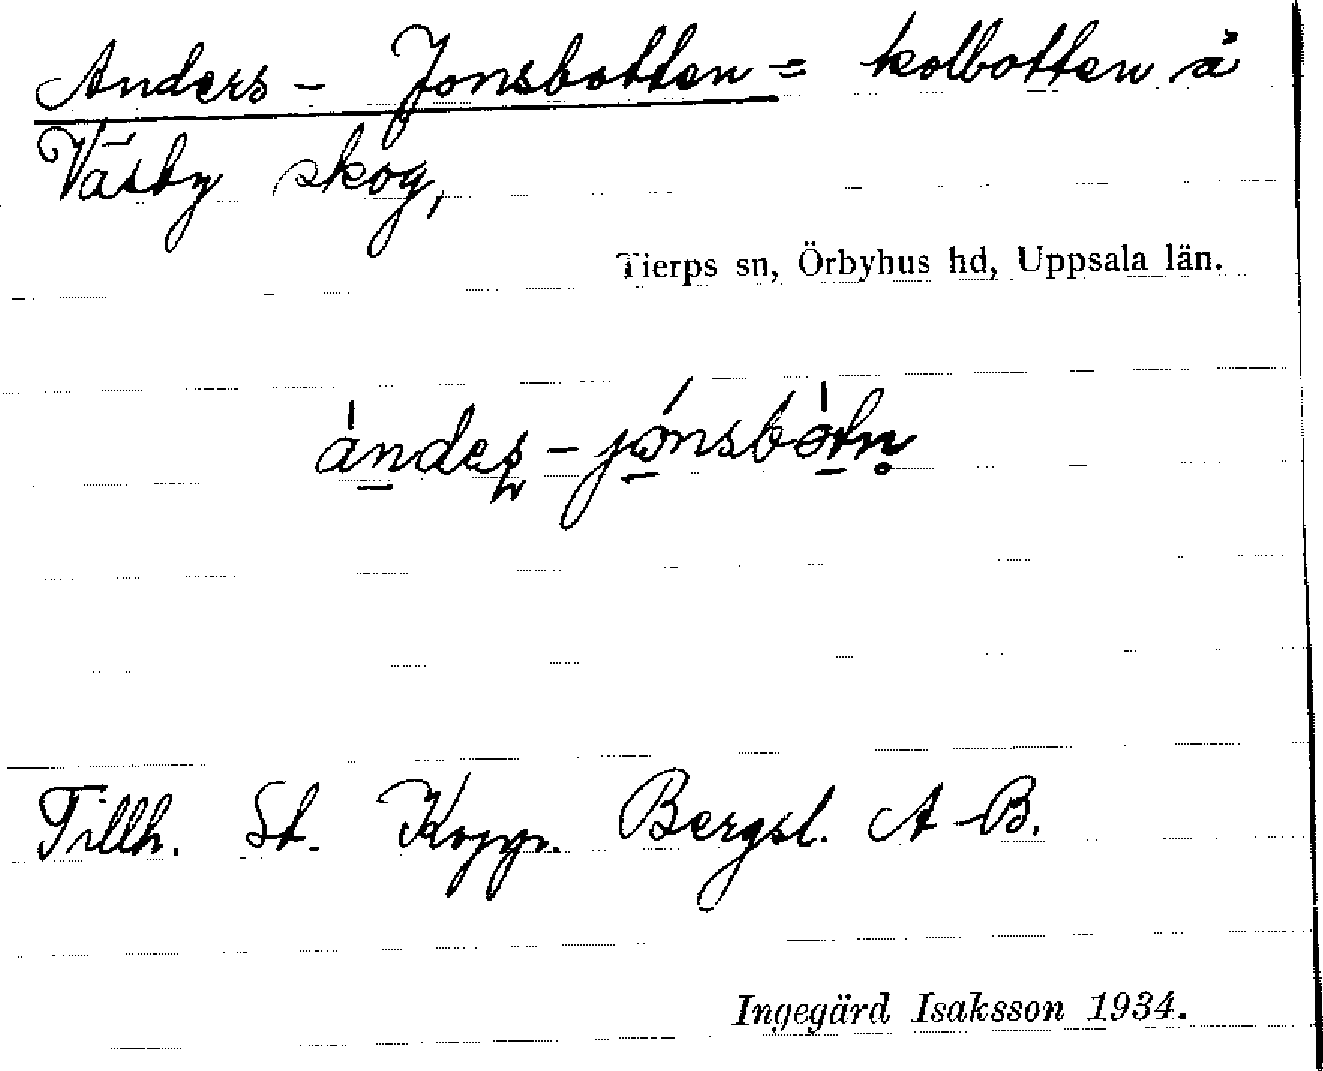 Anders-Jonsbotten = kolbotten å
Väsby skog,
Tierps sn, Örbyhus hd, Uppsala län.
Tillh. St. Kopp. Bergsl. A-B.
Ingegärd Isaksson 1934.